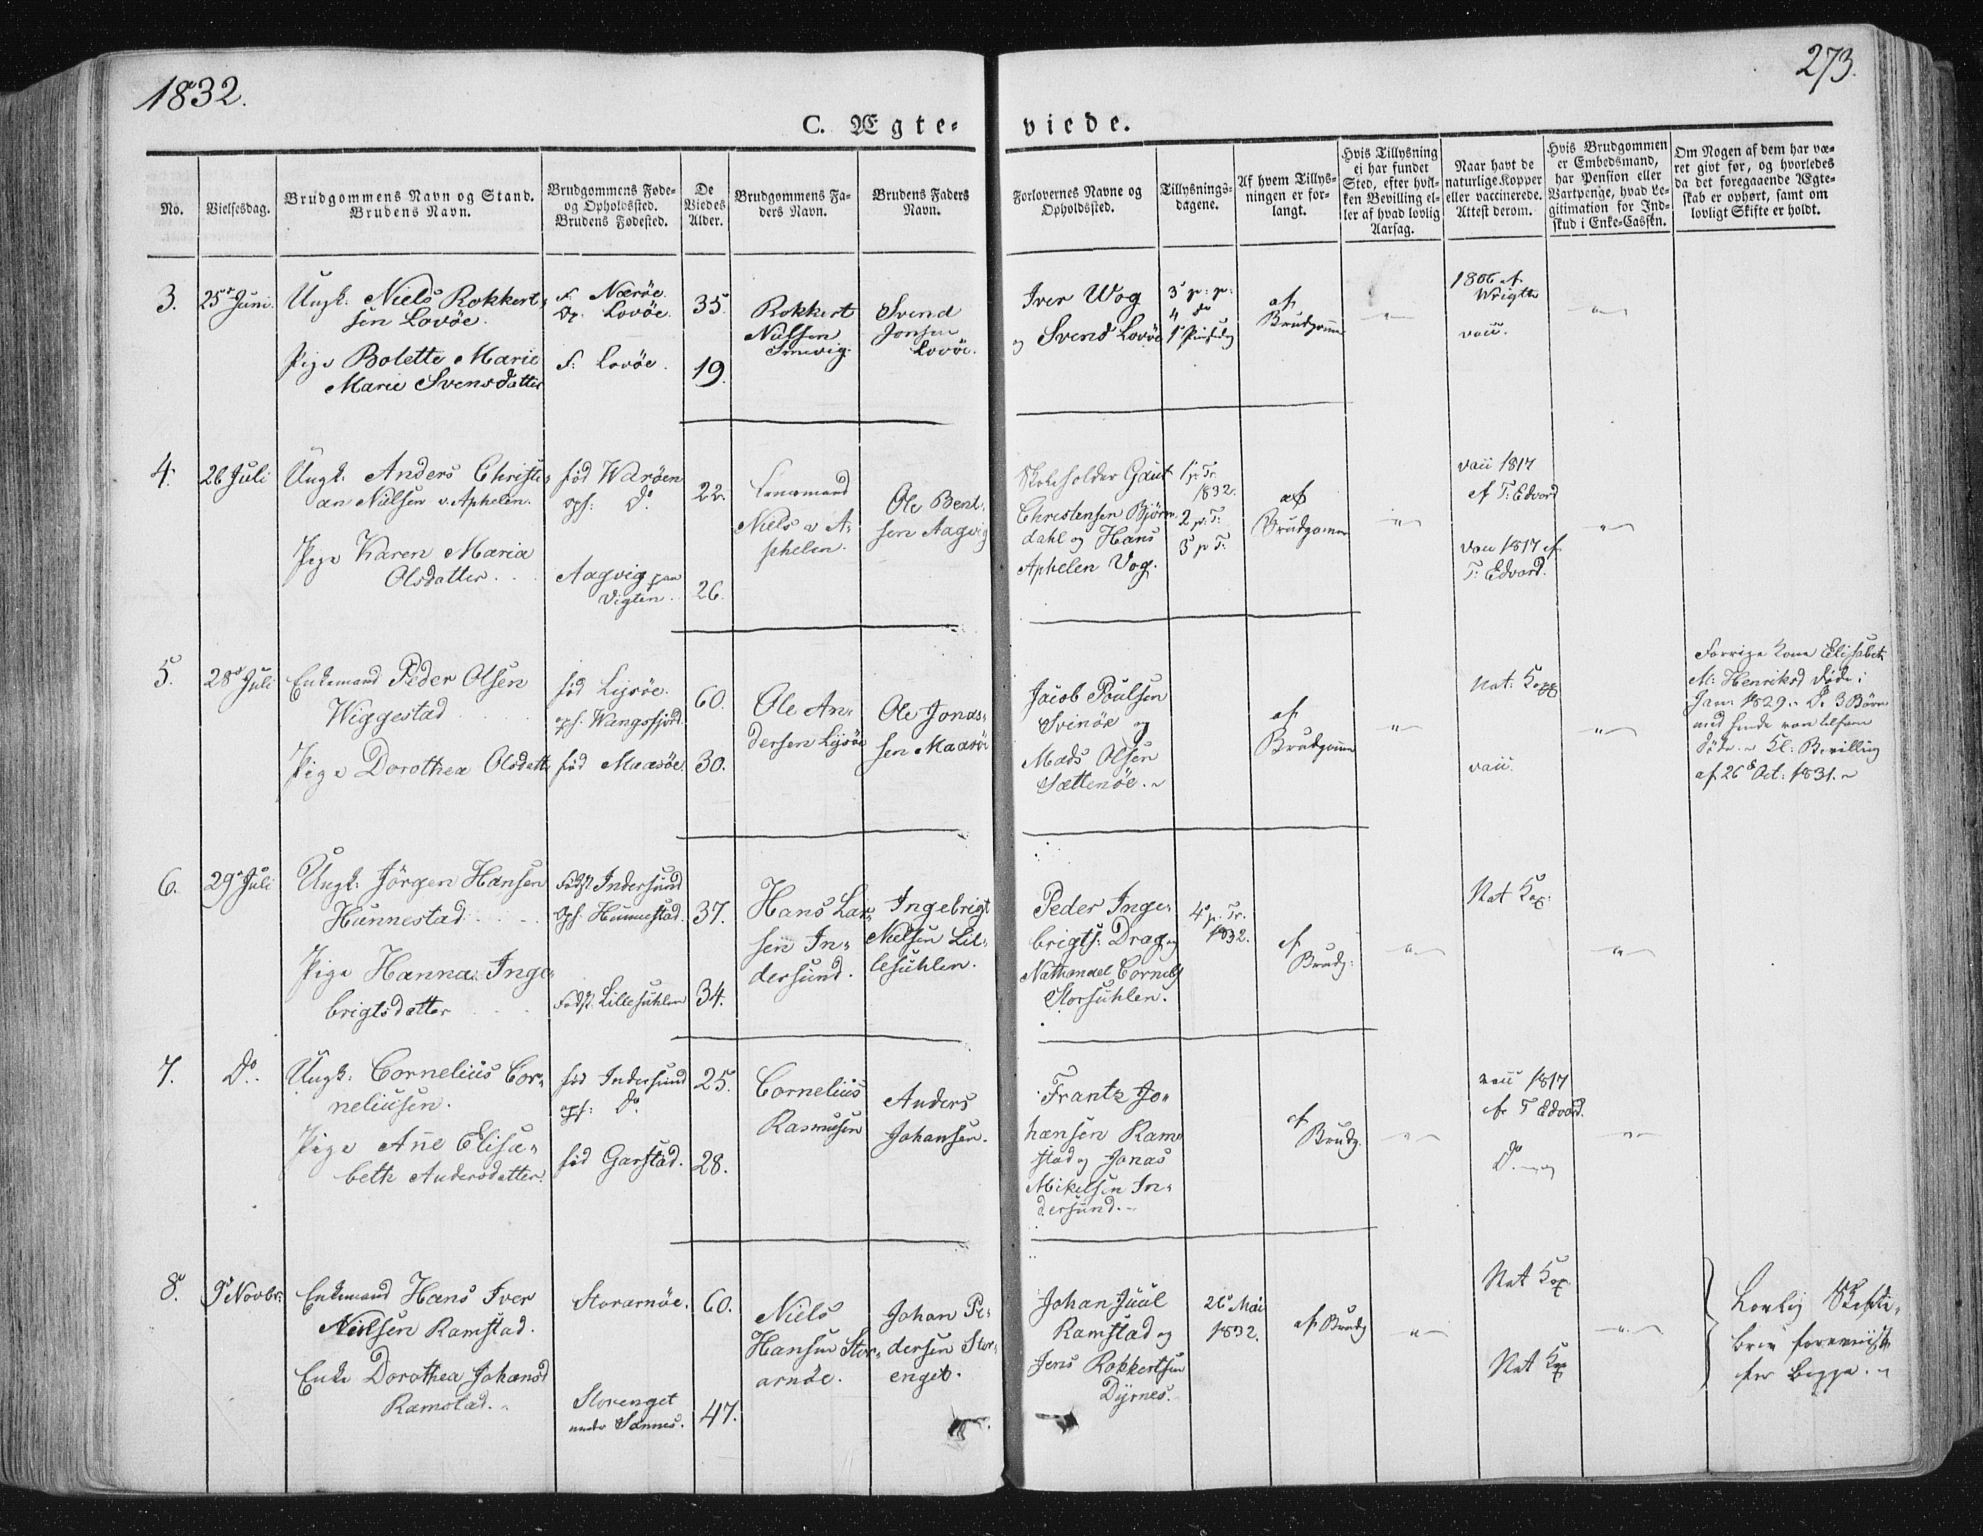 1832.
273.
C. Ægte-
viede.
No.
Vielsesdag.
Brudgommens Navn og Stand.
Brudens Navn.
Brudgommens Føde-
og Opholdssted.
Brudens Fødested.
De
Viedes
Alder.
Brudgommens Fa-
ders Navn.
Brudens Faders
Navn.
Forlovernes Navne og
Opholdssted.
Tillysnings-
dagene.
Af hvem Tillys-
ningen er for-
langt.
Hvis Tillysning
ei har fundet
Sted, efter hvil-
ken Bevilling el-
ler af hvad lovlig
Aarsag.
Naar havt de
naturlige Kopper
eller vaccinerede.
Attest derom.
Hvis Brudgommen
er Embedsmand,
har Pension eller
Vartpenge, hvad Le-
gitimation for Ind-
skud i Enke-Cassen.
Om Nogen af dem har væ-
ret givt før, og hvorledes
da det foregaaende Ægte-
skab er ophørt, samt om
lovligt Skifte er holdt.
3.
25 Juni.
Ungk. Niels Rokkert-
sen Lovøe.
Pige Bolette Marie
Marie Svensdatter
f. Nærøe.
Op. Lovøe.
f. Lovøe.
35.
19.
Rokkert
Nilssen
Svend
Jonsen
Lovøe.
Iver Wog
og Svend Lovøe
af
Brudgomen
1806 af
Wrigth
vacc.
4.
26 Juli
Ungk. Anders Christi-
an Nilsen v. Aphelen.
Pige Karen Maria
Olsdatter.
fød Warøen
oph: Do
Aagvig paa
Vigten.
22.
26.
Lensmand
Niels v A-
phelen.
Ole Bent-
sen Aagvig
Skoleholder Gaut
Christensen Bjørn-
dahl og Hans
Aphelen Vog.
1 p. Tr.
1832.
2 p. T.
3 p T.
af
Brudgomen
vacc 1817
af T: Edvard
vacc 1817 af
T: Edvard.
5.
28 Juli
Enkemand Peder Olsen
Wiggestad
Pige Dorothea Olsdatt
fød Lysøe.
oph: Wangsfjord.
fød Maasøe.
60.
30.
Ole An-
dersen Lysøe
Ole Jonas-
sen Maasøe
Jacob Poulsen
Svinøe og
Mads Olsen
Sættenøe.
af
Brudgomen
Nat: Kopp
vacc.
Forrige Kone Elisabet
M: Henriksd døde i
Jan: 1829. De 3 Børn
med hende van tilsam
døde. Kl: Bevilling
af 26 Oct: 1831.
6.
29 Juli
Ungk. Jörgen Hansen
Hunnestad
Pige Hanna Inge-
brigtsdatter
Fødst. Indersund
Oph. Hunnestad.
Fødst. Lillesuhlen
37.
34.
Hans Lar-
sen In-
dersund.
Ingebrigt
Nielsen Lil-
lesuhlen.
Peder Inge-
brigts: Drag og
Nathanael Cornels
Storsuhlen.
4 p. Tr.
1832.
af
Brudg:
Nat Kop:
7.
Do.
Ungk: Cornelius Cor-
neliusen.
Pige Ane Elisa-
beth Andersdatter.
fød Indersund
oph: Do.
fød Garstad.
25.
28.
Cornelius
Rasmusen
Anders
Johansen.
Frantz Jo-
hansen Ram-
stad og Jonas
Mikelsen In-
dersund.
af
Brudg.
vacc 1817
af T Edvard.
Do.
8.
9 Novbr.
Enkemand Hans Iver
Nielsen Ramstad.
Enke Dorothea Johansd
Ramstad.
Storarnøe.
Storenget
under Sannes.
60.
47.
Niels
Hansen Stor-
arnøe.
Johan Pe-
dersen Stor-
enget.
Johan Juul
Ramstad og
Jens Rokkertsen
Dyrnes.
26 Mai
1832.
af Brudg
Nat Kop
Nat Kop
Lovlig Skifte-
brev foreviist
for Begge.